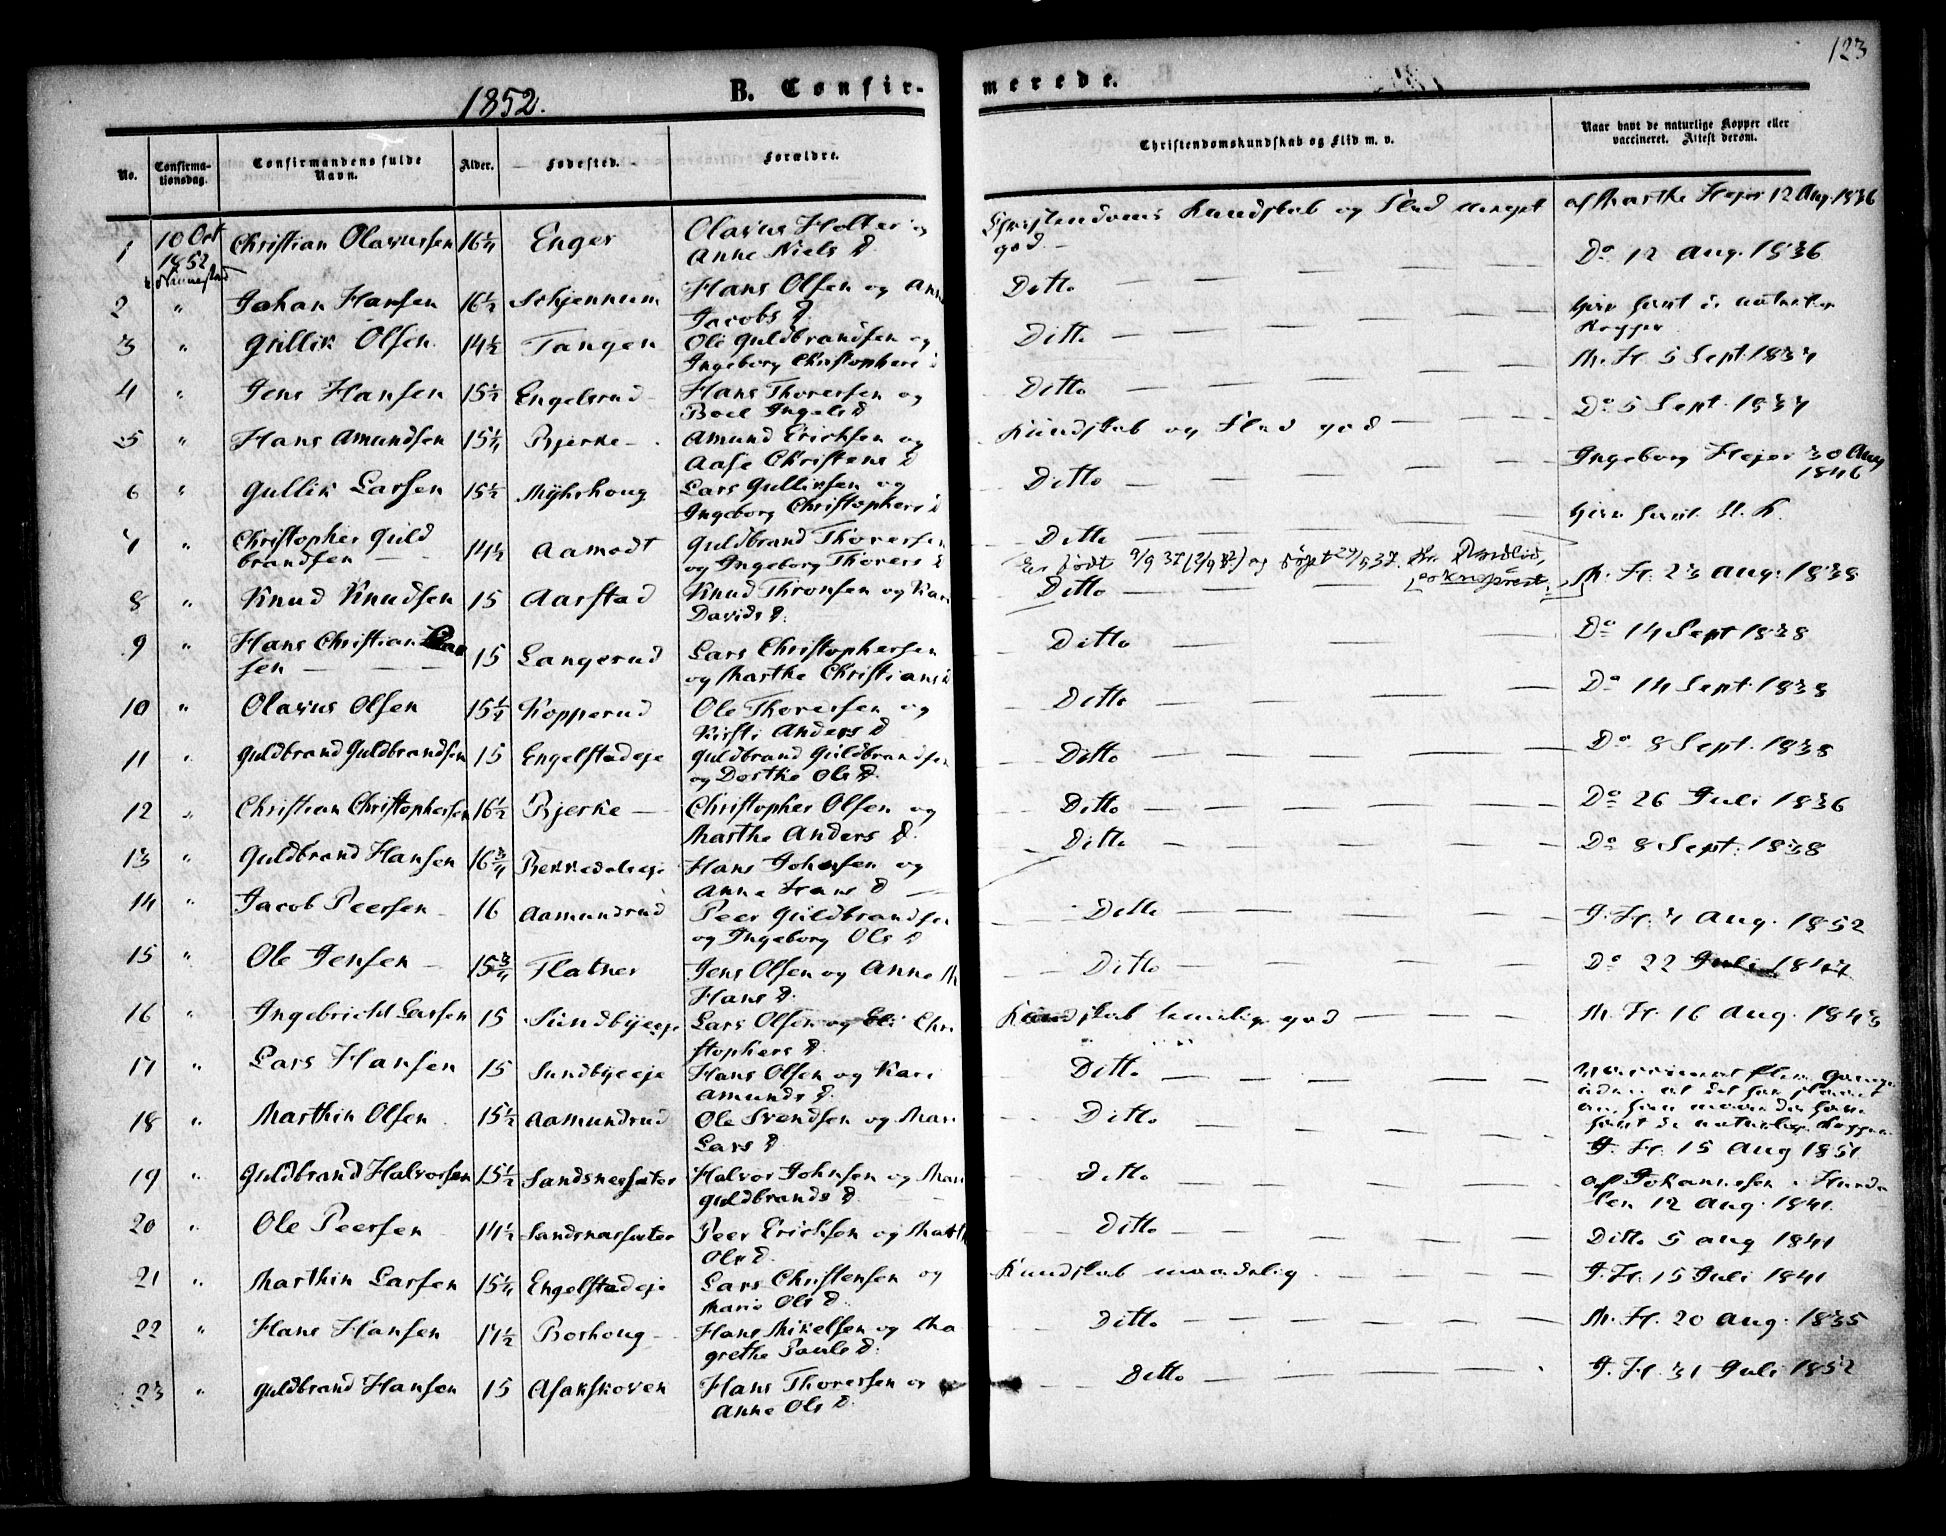 123
1852.
B. Confir-
merede.
No.
Confirma-
tionsdag.
Confirmandens fulde
Navn.
Alder.
Fødested.
Forældre.
Christendomskundskab og Flid m. v.
Naar havt de naturlige Kopper eller
vaccineret. Attest derom.
1 10 Oct 1852 Christian Olavussen 16¼ Enger Olavus Holter og
Anne Niels D
Christendoms Kundskab og Flid meget
god.
af Marthe Hejer 12 Aug. 1836
2 " Johan Hansen 16½ Schjennum Hans Olsen og Anne
Jacobs D.
Ditto
Do 12 Aug. 1836
3 " Gullik Olsen 14½ Tangen Ole Guldbrandsen og
Ingeborg Christophers D
Ditto
Kopper
4 " Jens Hansen 15½ Engelsrud Hans Thoresen og
Boel Ingels D
Ditto
M. H. 5 Sept. 1837
5 " Hans Amundsen 15¼ Bjerke Amund Ericksen og
Aase Christens D
Kundskab og Flid god
Do 5 Sept. 1837
6 " Gullik Larsen 15½ Myhrhoug Lars Gulliksen og
Ingeborg Christophers D
Ditto
Ingeborg Hejer 30 Aug
1846
7 " Christopher Guld
brandsen 14½ Aamodt Guldbrand Thoresen
og Ingeborg Thorers D
Ditto
født og døpt
8 " Knud Knudsen 15 Aarstad Knud Thronsen og Kari
Davids D.
Ditto
M. H. 23 Aug. 1838
9 " Hans Christian Lar
sen 15 Langerud Lars Christophersen
og Marthe Christians D
Ditto
Do 14 Sept 1838
10 " Olavus Olsen 15¼ Kopperud Ole Thoresen og
Kirsti Anders D
Ditto
Do 14 Sept. 1838
11 " Guldbrand Guldbrandsen 15 Engelstadeje Guldbrand Guldbrandsen
og Dorthe Ols D.
Ditto
Do 8 Sept. 1838
12 " Christian Christophersen 16½ Bjerke Christopher Olsen og
Marthe Anders D.
Ditto
Do 26 Juli 1836
13 " Guldbrand Hansen 16¾ Bekkedalseje Hans Johnsen og
Anne Hans D
Ditto
Do 8 Sept. 1838
14 " Jacob Peersen 16 Aamundrud Peer Guldbrandsen
og Ingeborg Ols D
Ditto
J. H. 7 Aug. 1852
15 " Ole Jensen 15¾ Flatner Jens Olsen og Anne M
Hans D.
Ditto
Do 22 Juli 1847
16 " Ingebricht Larsen 15 Sundbyeeje Lars Olsen og Eli Chri
stophers D.
Kundskab temelig god
M. H. 16 Aug. 1843
17 " Lars Hansen 15 Sundbyeeje Hans Olsen og Kari
Amunds D.
Ditto
18 " Marthin Olsen 15½ Aamundrud Ole Svendsen og Mari
Lars D.
Ditto
J. H. 15 Aug 1851
19 " Guldbrand Halvorsen 15½ Sandsnessæter Halvor Johnsen og Mari
Guldbrands D.
Ditto
af Johannesen i Hurda
len 12 Aug. 1841.
20 " Ole Peersen 14½ Sandsnessæter Peer Ericksen og Marth
Ols D.
Ditto
Ditto 5 Aug 1841
21 " Marthin Larsen 15¼ Engelstadeje Lars Christensen og
Marie Ols D.
Kundskab maadelig
J. H. 15 Juli 1841
22 " Hans Hansen 17½ Boshoug Hans Mikelsen og Ma
grethe Pauls D.
Ditto
M. H. 20 Aug. 1835
23 " Guldbrand Hansen 15 Asakskoven Hans Thoresen og
Anne Ols D.
Ditto
J. H. 31 Juli 1852